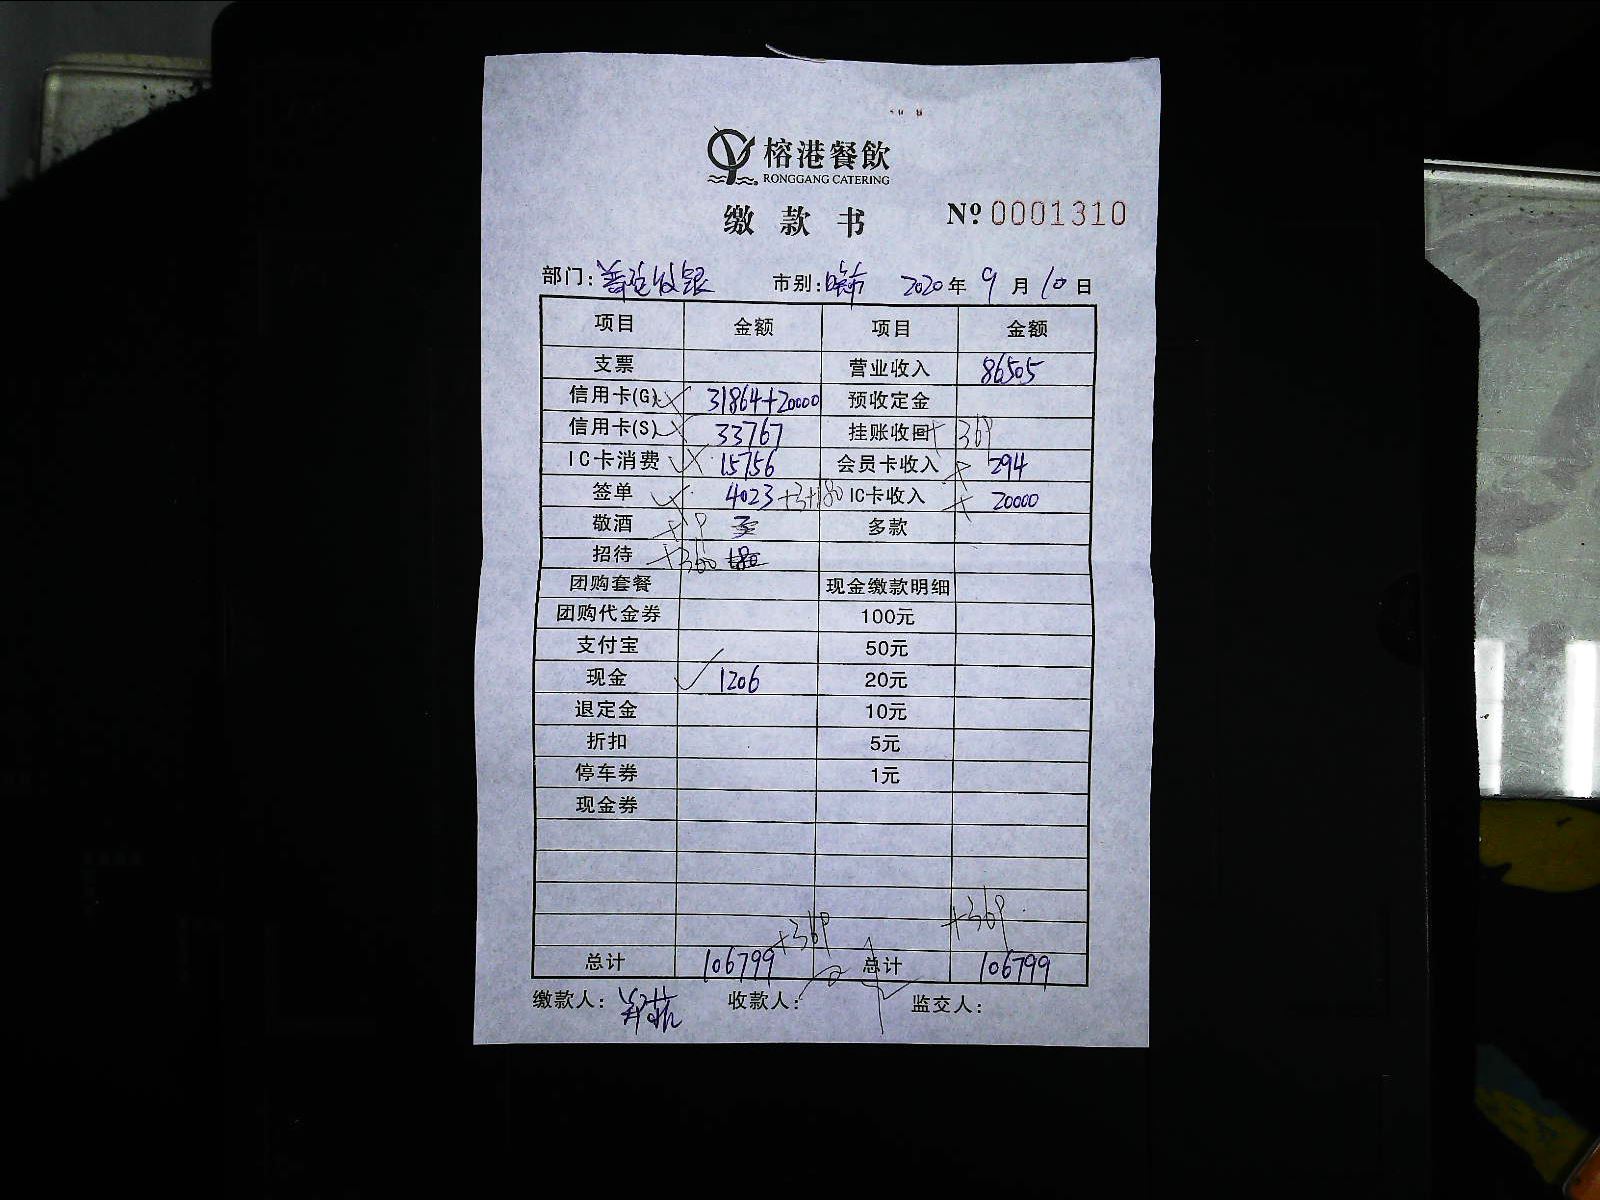 榕港餐飲
RONGGANG CATERING
缴款书 № 0001310
部门: 收银 市别: 晚市 2020年 9月 10日
项目 金额 项目 金额
支票 营业收入 86505
信用卡(G) 31864+20000 预收定金
信用卡(S) 33767 挂账收回 + 369
IC卡消费 15756 会员卡收入 294
签单 4023+3+180 IC卡收入 20000
敬酒 +9 多款
招待 +360 180
团购套餐 现金缴款明细
团购代金券 100元
支付宝 50元
现金 1206 20元
退定金 10元
折扣 5元
停车券 1元
现金券
+369 +369
总计 106799 总计 106799
缴款人: 收款人: 监交人: